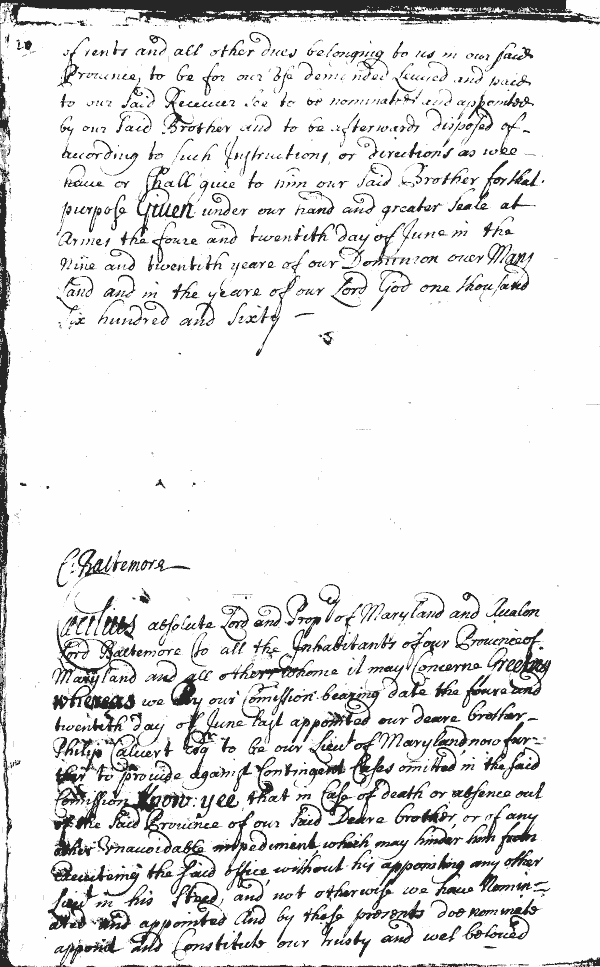 of rents and all other dues belonging to us in our said
Province, to be for our Use demanded secured and paid
to our said Receiver soe to be nominated and appointed
by our said Brother and to be afterwards disposed of
according to such Instructions, or directions as wee
have or shall give to him our said Brother for that
purpose Given under our hand and greater Seale at
Armes the foure and twentith day of June in the
Nine and twentith yeare of our Dominion over Mary
Land and in the yeare of our Lord God one thousand
Six hundred and Sixty
C: Baltemore
Cecilius absolute Lord and Prop.r of Maryland and Avalon
Lord Baltemore to all the Inhabitants of our Province of
Maryland and all others whome it may Concerne Greeting
whereas we by our Comission bearing date the foure and
twentith day of June last appointed our deare brother
Philip Calvert Esq.r to be our Lieut of Maryland now fur-
ther to provide against Contingent Cases omitted in the said
Comission Know yee that in Case of death or absence out
of the said Province of our said Deare brother, or of any
other Unavoidable impediment which may hinder him from
executeing the said office without his appointing any other
Lieut in his Steed, and not otherwise we have Nomin-
ated and appointed And by these presents doe nominate
appoint and Constitute our trusty and wel beloved